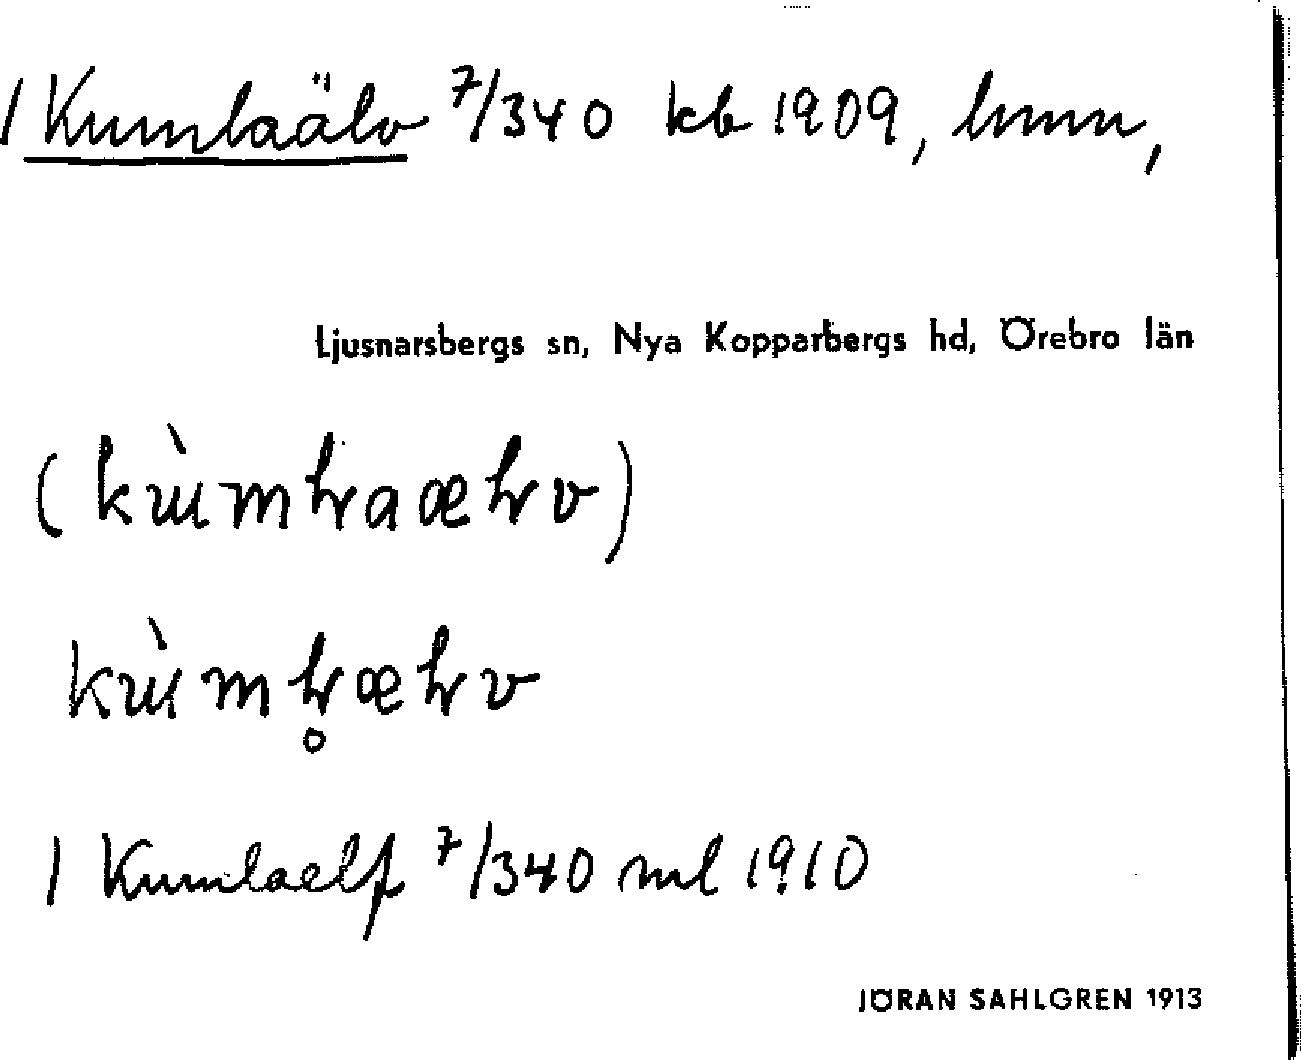 1 Kumlaälv 7/340 kb 1909, hmn,
Ljusnarsbergs sn, Nya Kopparbergs hd, Örebro län
1 Kumlaelf 7/340 ml 1910
JÖRAN SAHLGREN 1913